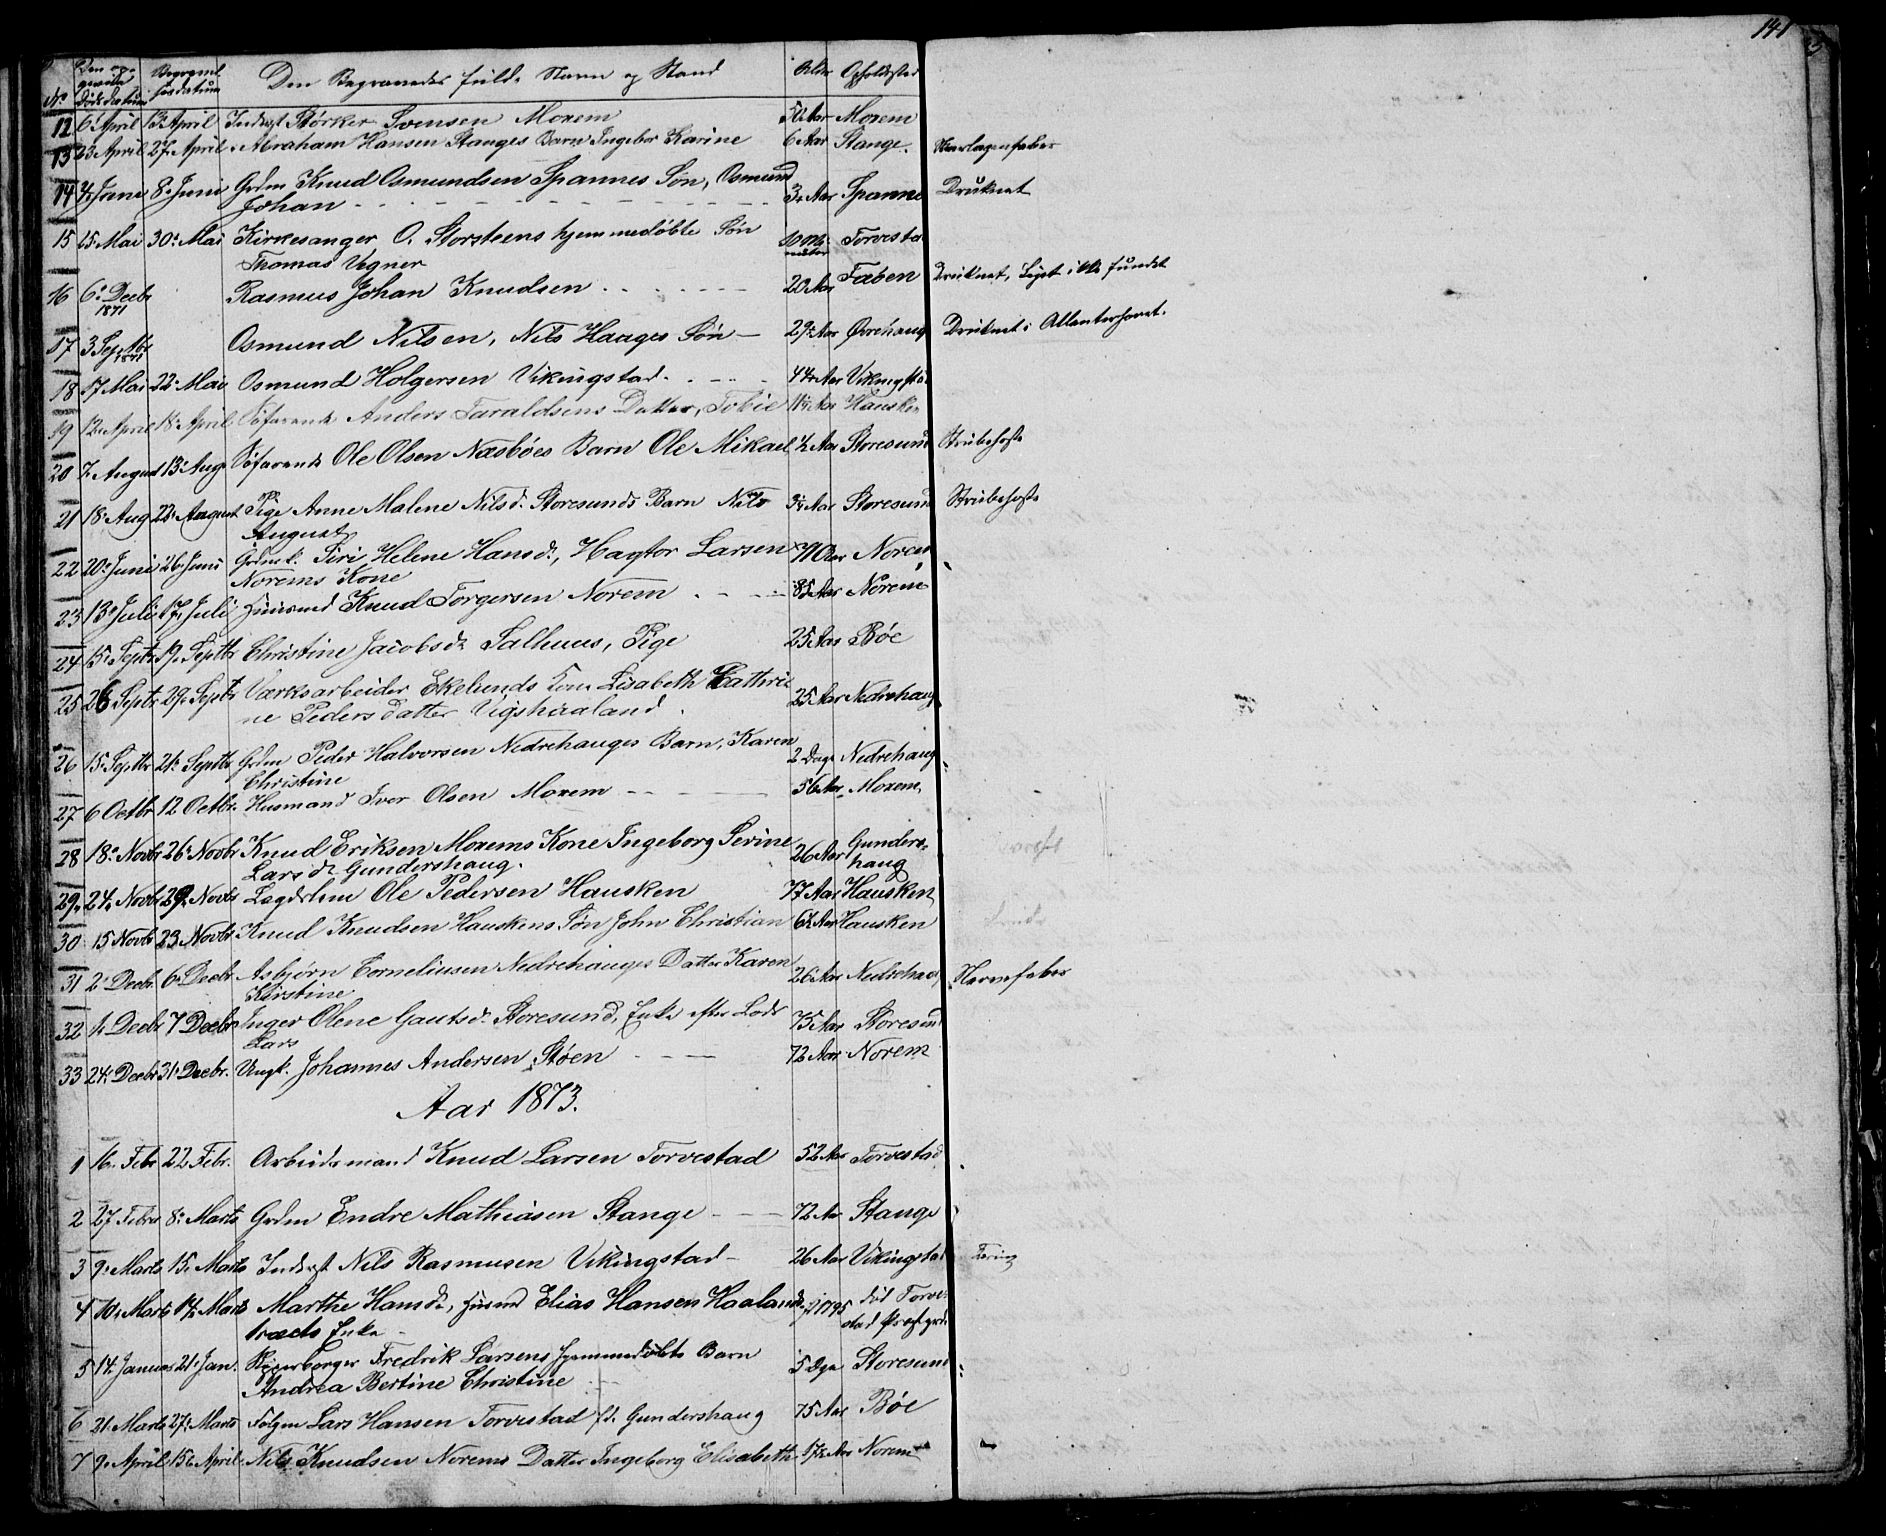 141
No Den opgivne Dødsdatum Begravelsesdatum Den Begravedes fulde Navn og Stand Alder Opholdssted
12 6 April 13 April Inderst Størker Svensen Moxem 50 Aar Moxem
13 23 April 27 April Abraham Hansen Stanges Barn Ingebor Karine 6 Aar Stange. Skarlagensfeber
14 4 Juni 8 Juni Grdm Knud Osmundsen Spannes Søn, Osmund 3 Aar Spanne Druknet
Johan
15 25 Mai 30 Mai Kirkesanger O. Storsteens hjemmedøbte Søn 10 Minuter Torvestad
Thomas Vegner
16 6 Decbr 1871 Rasmus Johan Knudsen 20 Aar Fæøen Druknet, Liget ikke fundet
17 3 Septbr 1871 Osmund Nilsen, Nils Haages Søn 29 Aar Øvrehaug Druknet i Atlanterhavet.
18 17 Mai 22 Mai Osmund Holgersen Vikingstad. 44 Aar Vikingstad
19 12 April 18 April Søfarende Anders Taraldsens Datter, Tobie Aar Hausken
20 7 August 13 Aug Søfarende Ole Olsen Næsbøes Barn Ole Mikael ½ Aar Storesund Strubehoste
21 18 Aug 22 August Pige Anne Malene Nilsd. Storesunds Barn Nils Aar Storesund Strubehoste
August
22 20 Juni 26 Juni Grdmk. Siri Helene Hansd., Hagtor Larsen Aar Norem
Norems Kone
23 13 Juli 17 Juli Huusmd Knud Torgersen Norem 85 Aar Norem
24 15 Septbr 19 Septbr Christine Jacobsd. Salhuus, Pige 25 Aar Bøe
25 26 Septr 29 Septr Værksarbeider Ekelunds Kone Lisabeth Cathri 25 Aar Nedrehaug
ne Pedersdatter Vigshaaland.
26 15 Septbr 21 Septbr Grdm Peder Halvorsen Nedrehauges Barn, Karen 2 Dage Nedrehaug
Christine
27 6 Octbr 12 Octbr. Husmand Iver Olsen Moxem 56 Aar Moxem
28 18 Novbr 26 Novbr Knud Eriksen Moxems Kone Ingeborg Serine 26 Aar Gunders-
Larsd. Gundershaug. haug
29 24 Novbr 29 Novbr Lægdslem Ole Pedersen Hausken 77 Aar Hausken
30 15 Novbr 23 Novbr Knud Knudsen Hauskens Søn John Christian Aar Hausken
31 2 Decbr. 6 Decbr. Asbjørn Corneliusen Nedrehauges Datter Karen 26 Aar Nedrehaug Nervefeber
Kirstine
32 1 Decbr 7 Decbr Inger Olene Gautsd. Storesund, Enke efter Lods 75 Aar Storesund
Lars
33 24 Decbr 31 Decbr. Ungk. Johannes Andersen Støen 72 Aar Norem
Aar 1873.
1 16 Febr 22 Febr. Arbeidsmand Knud Larsen Torvestad 52 Aar Torvestad
2 27 Febr 8 Marts Grdm Endre Mathiasen Stange 72 Aar Stange
3 9 Marts 15 Marts Inderst Nils Rasmusen Vikingstad 26 Aar Vikingstad Tæring
4 10 Marts 17 Marts Marthe Hansd., Husmd Elias Hansen Haaland f 1795 død Torve-
træets Enke stad Præstgrd
5 14 Januar 21 Jan. Skipperborger Fredrik Larsens hjemmedøbte Barn 5 Dge Storesund
Andrea Bertine Christine
6 21 Marts 27 Marts Følgm Lars Hansen Torvestad fd. Gundershaug 75 Aar Bøe
7 9 April 15 April Nils Knudsen Norems Datter Ingeborg Elisabeth Aar Norem